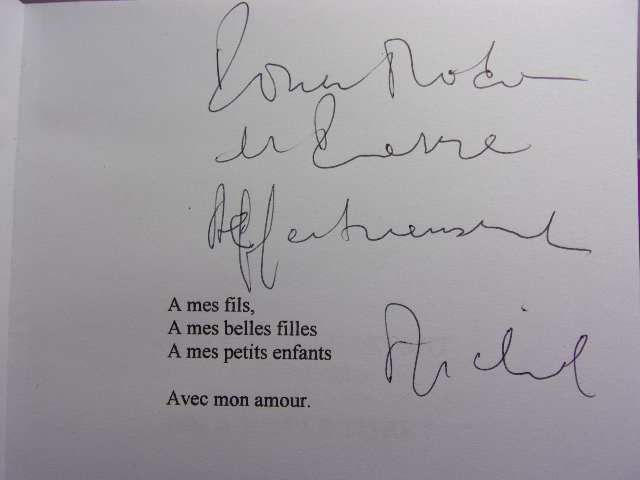 Pour
et Pierre
Affectueusement
A mes fils,
A mes belles filles
A mes petits enfants
Michel
Avec mon amour.